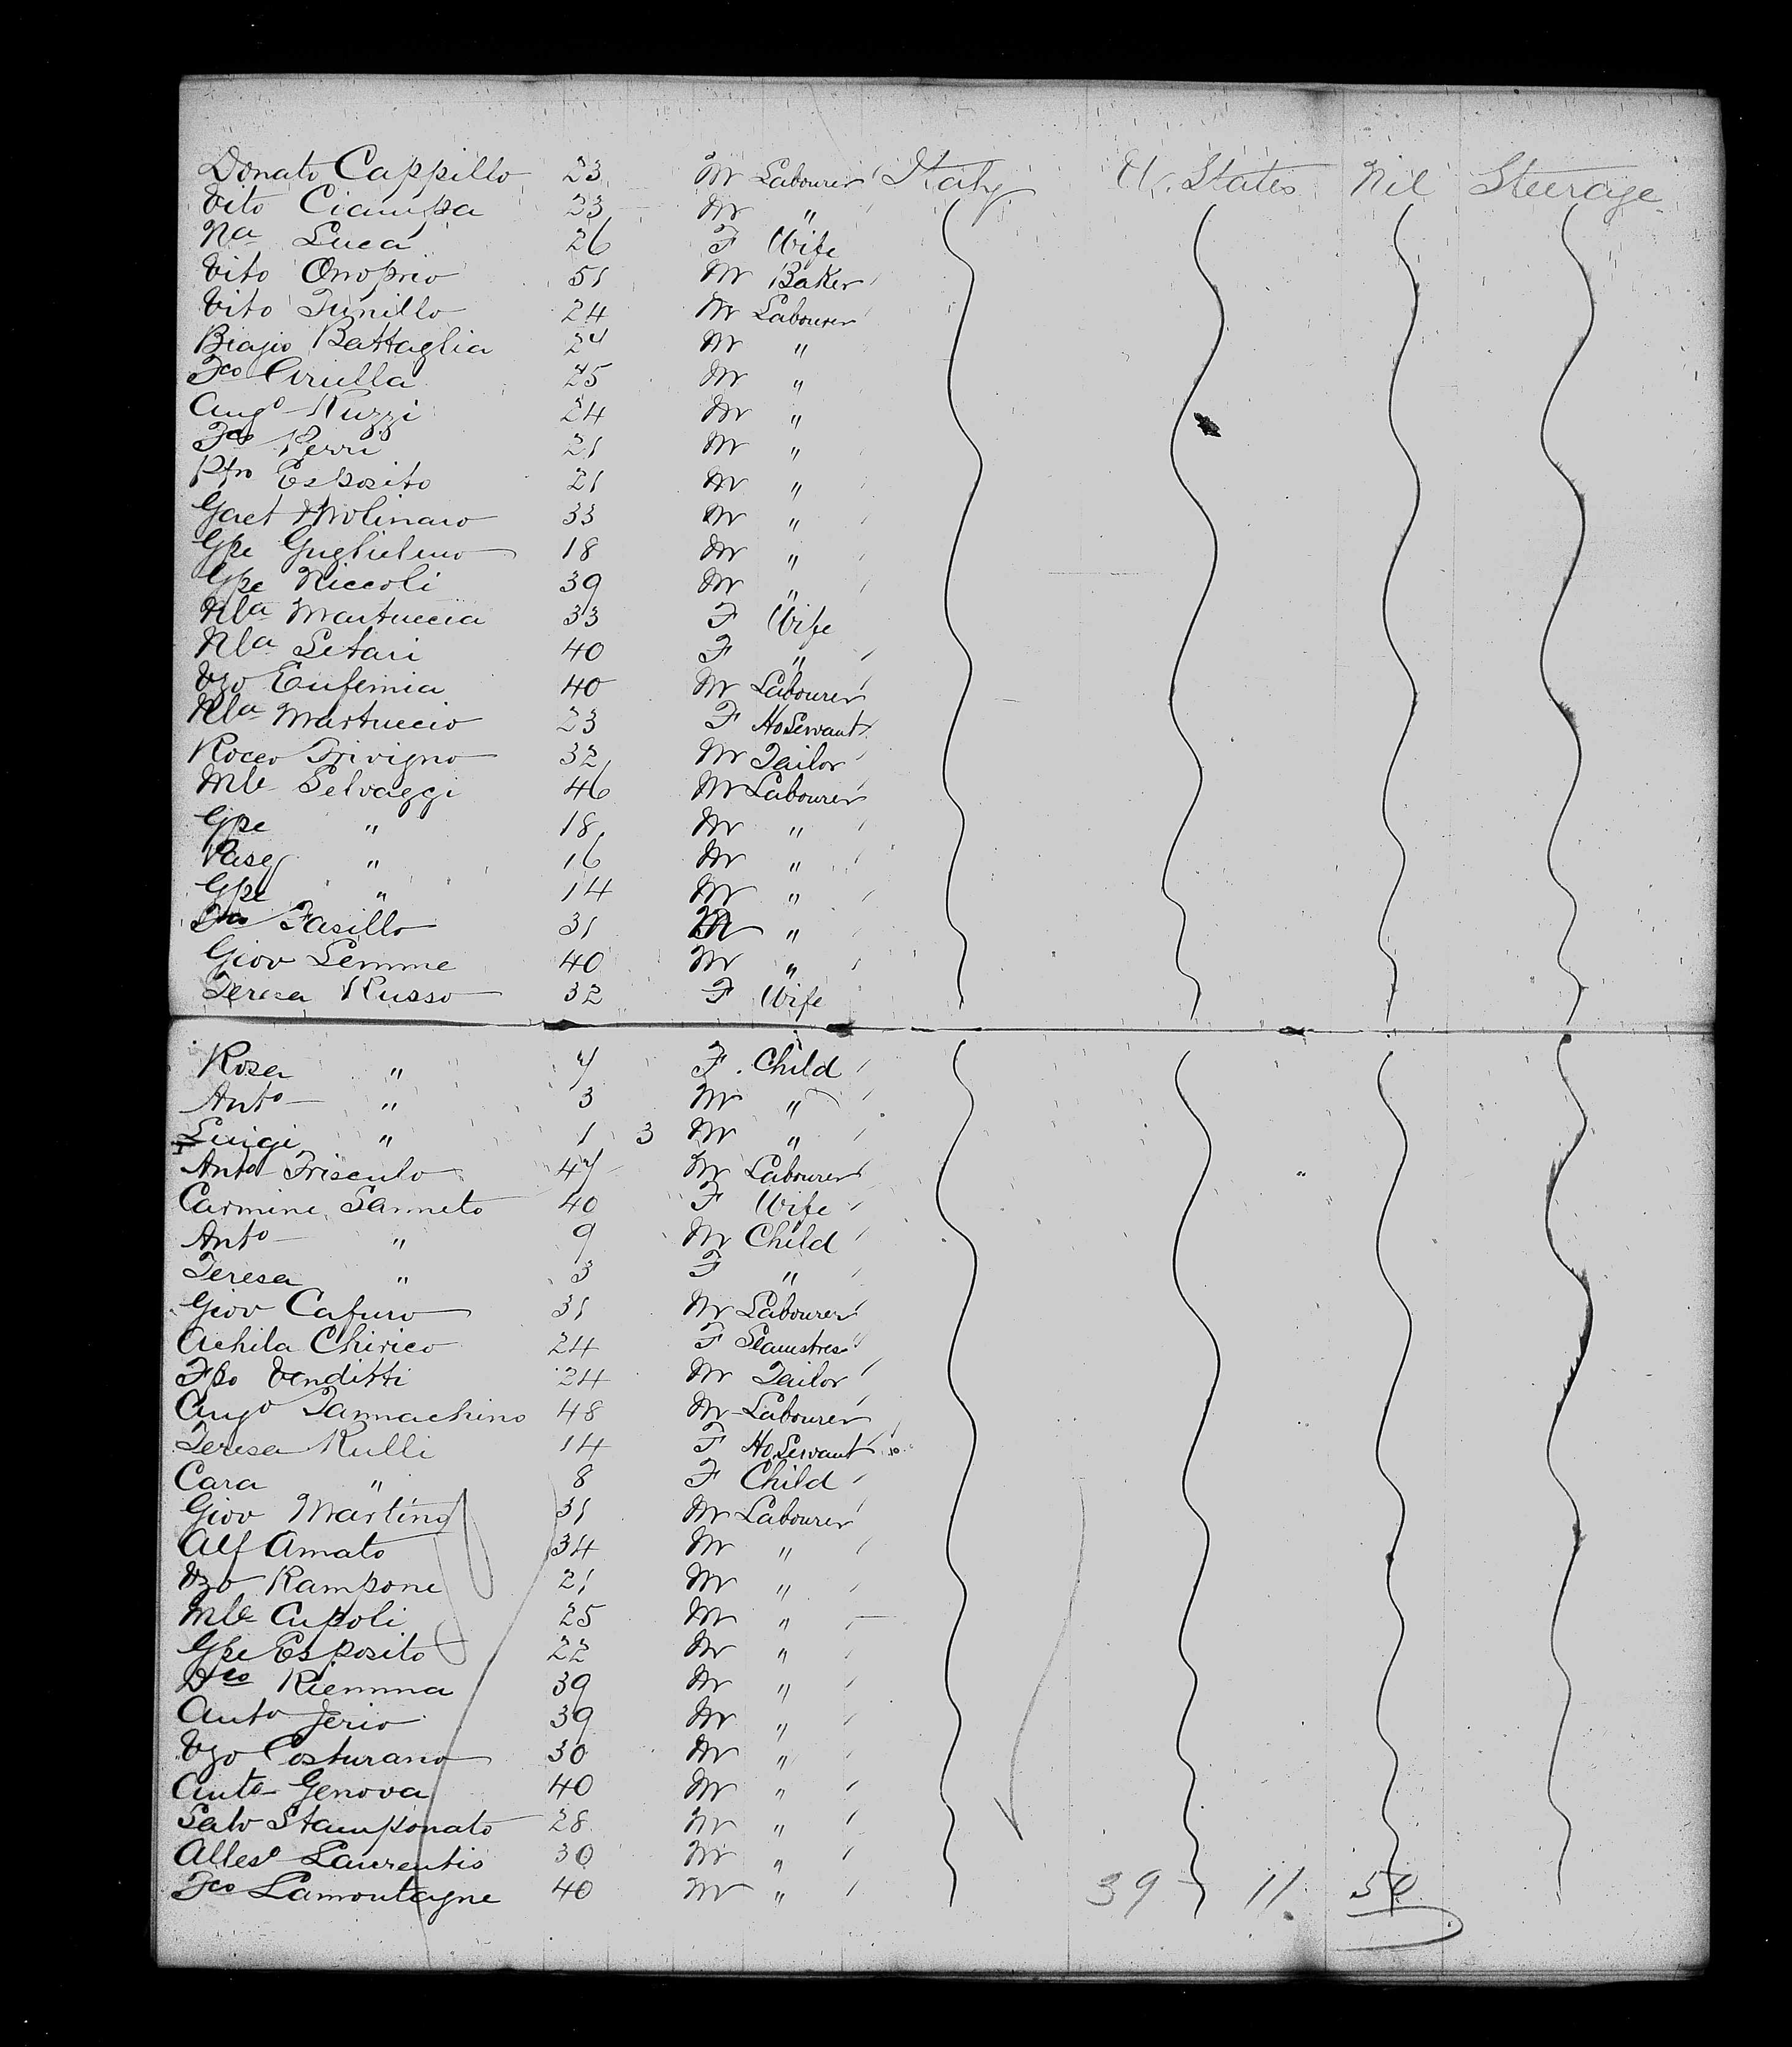 Donato Cappillo 23 M Labourer Italy U. States Nil Steerage
Vito Ciampa 23 M "
Na Luca 26 F Wife
Vito Onoprio 51 M Baker
Vito Tunillo 24 M Labourer
Biajio Battaglia 24 M "
Fco Cirulla 25 M "
Angº Ruzzi 24 M "
Fco Perri 21 M "
Ptro Esposito 21 M "
Gaet Molinaro 33 M "
Gpe Guglielmo 18 M "
Gpe Niccoli 39 M "
Nla Martuccia 33 F Wife
Nla Setari 40 F "
Vzo Eufemia 40 M Labourer
Nla Martuccio 23 F Ho Servant
Rocco Trivigno 32 M Tailor
Mle Selvaggi 46 M Labourer
Gpe " 18 M "
Pasq " 16 M "
Gpe " 14 M "
Fasillo 31 M "
Giov Lemme 40 M "
Teresa Russo 32 F Wife
Rosa " 7 F Child
Antº " 3 M "
Luigi " 1 3 M "
Antº Frisculo 47 M Labourer
Carmine Sanneto 40 F Wife
Antº " 9 M Child
Teresa " 3 F "
Giov Cafuro 31 M Labourer
Achila Chirico 24 F Seamstress
Fpo Venditti 24 M Tailor
Angº Tamachino 48 M Labourer
Teresa Rulli 14 F Ho Servant
Cara " 8 F Child
Giov Martino 31 M Labourer
Alf Amato 34 M "
Vzo Rampone 21 M "
Mle Cupoli 25 M "
Gpe Esposito 22 M "
Dco Riemma 39 M "
Antº Jerio 39 M "
Vzo Costurano 30 M "
Antº Genova 40 M "
Salv Stamponato 28 M "
Allesº Laurentis 30 M "
Fco Lamontagne 40 M " 39 - 11. 50